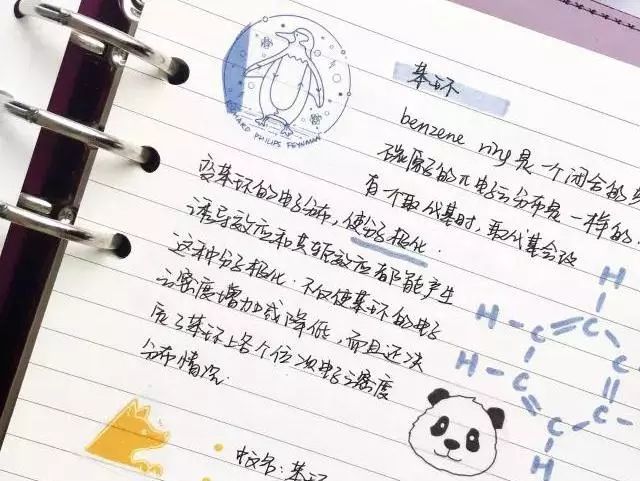 RICHARD PHILIPS FEYNMAN
苯环
benzene ring 是一个闭合的
碳原子的π电子云分布是一样的.
有个取代基时, 取代基会改
变苯环的电子分布, 使分子极化.
诱导效应和共轭效应都能产生
这种分子极化. 不仅使苯环的电子
云密度增加或降低, 而且还决
定了苯环上各个位次电子云密度
分布情况.
H
H-C
C
H-C
C-
C
C
H
H
中文名: 苯环